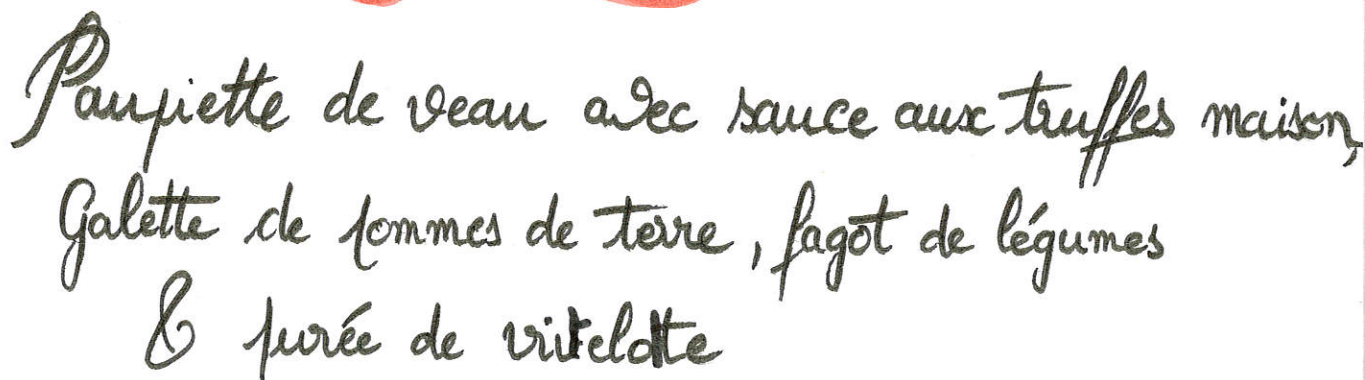 Paupiette de veau avec sauce aux truffes maison,
Galette de pommes de terre, fagot de légumes
& purée de vitelotte